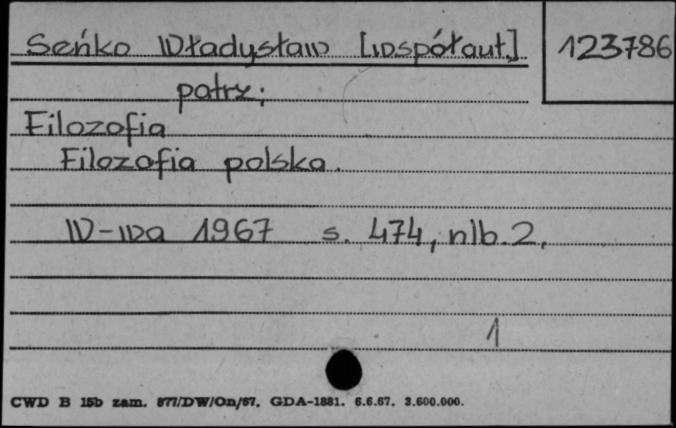 Seńko Władysław [współaut.] 123786
patrz:
Filozofia
Filozofia polska.
W-wa 1967 s. 474, nlb. 2,
1
CWD B 15b zam. 877/DW/On/67. GDA-1881. 6.6.67. 3.600.000.